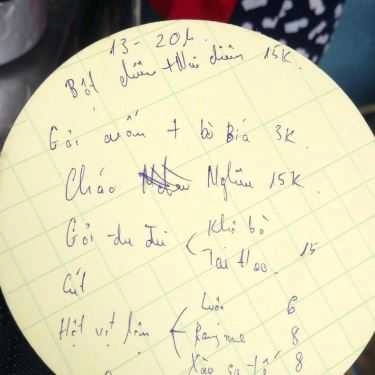 13 - 20h
Bột chiên + Nui chiên 15K.
Gỏi cuốn + bò Bía 3K
Cháo Nghêu 15K.
Gỏi đu đủ Khô bò
Tai Heo 15
Cút
Hột vịt lộn Luộc 6
Rang me 8
Xào sa tế 8